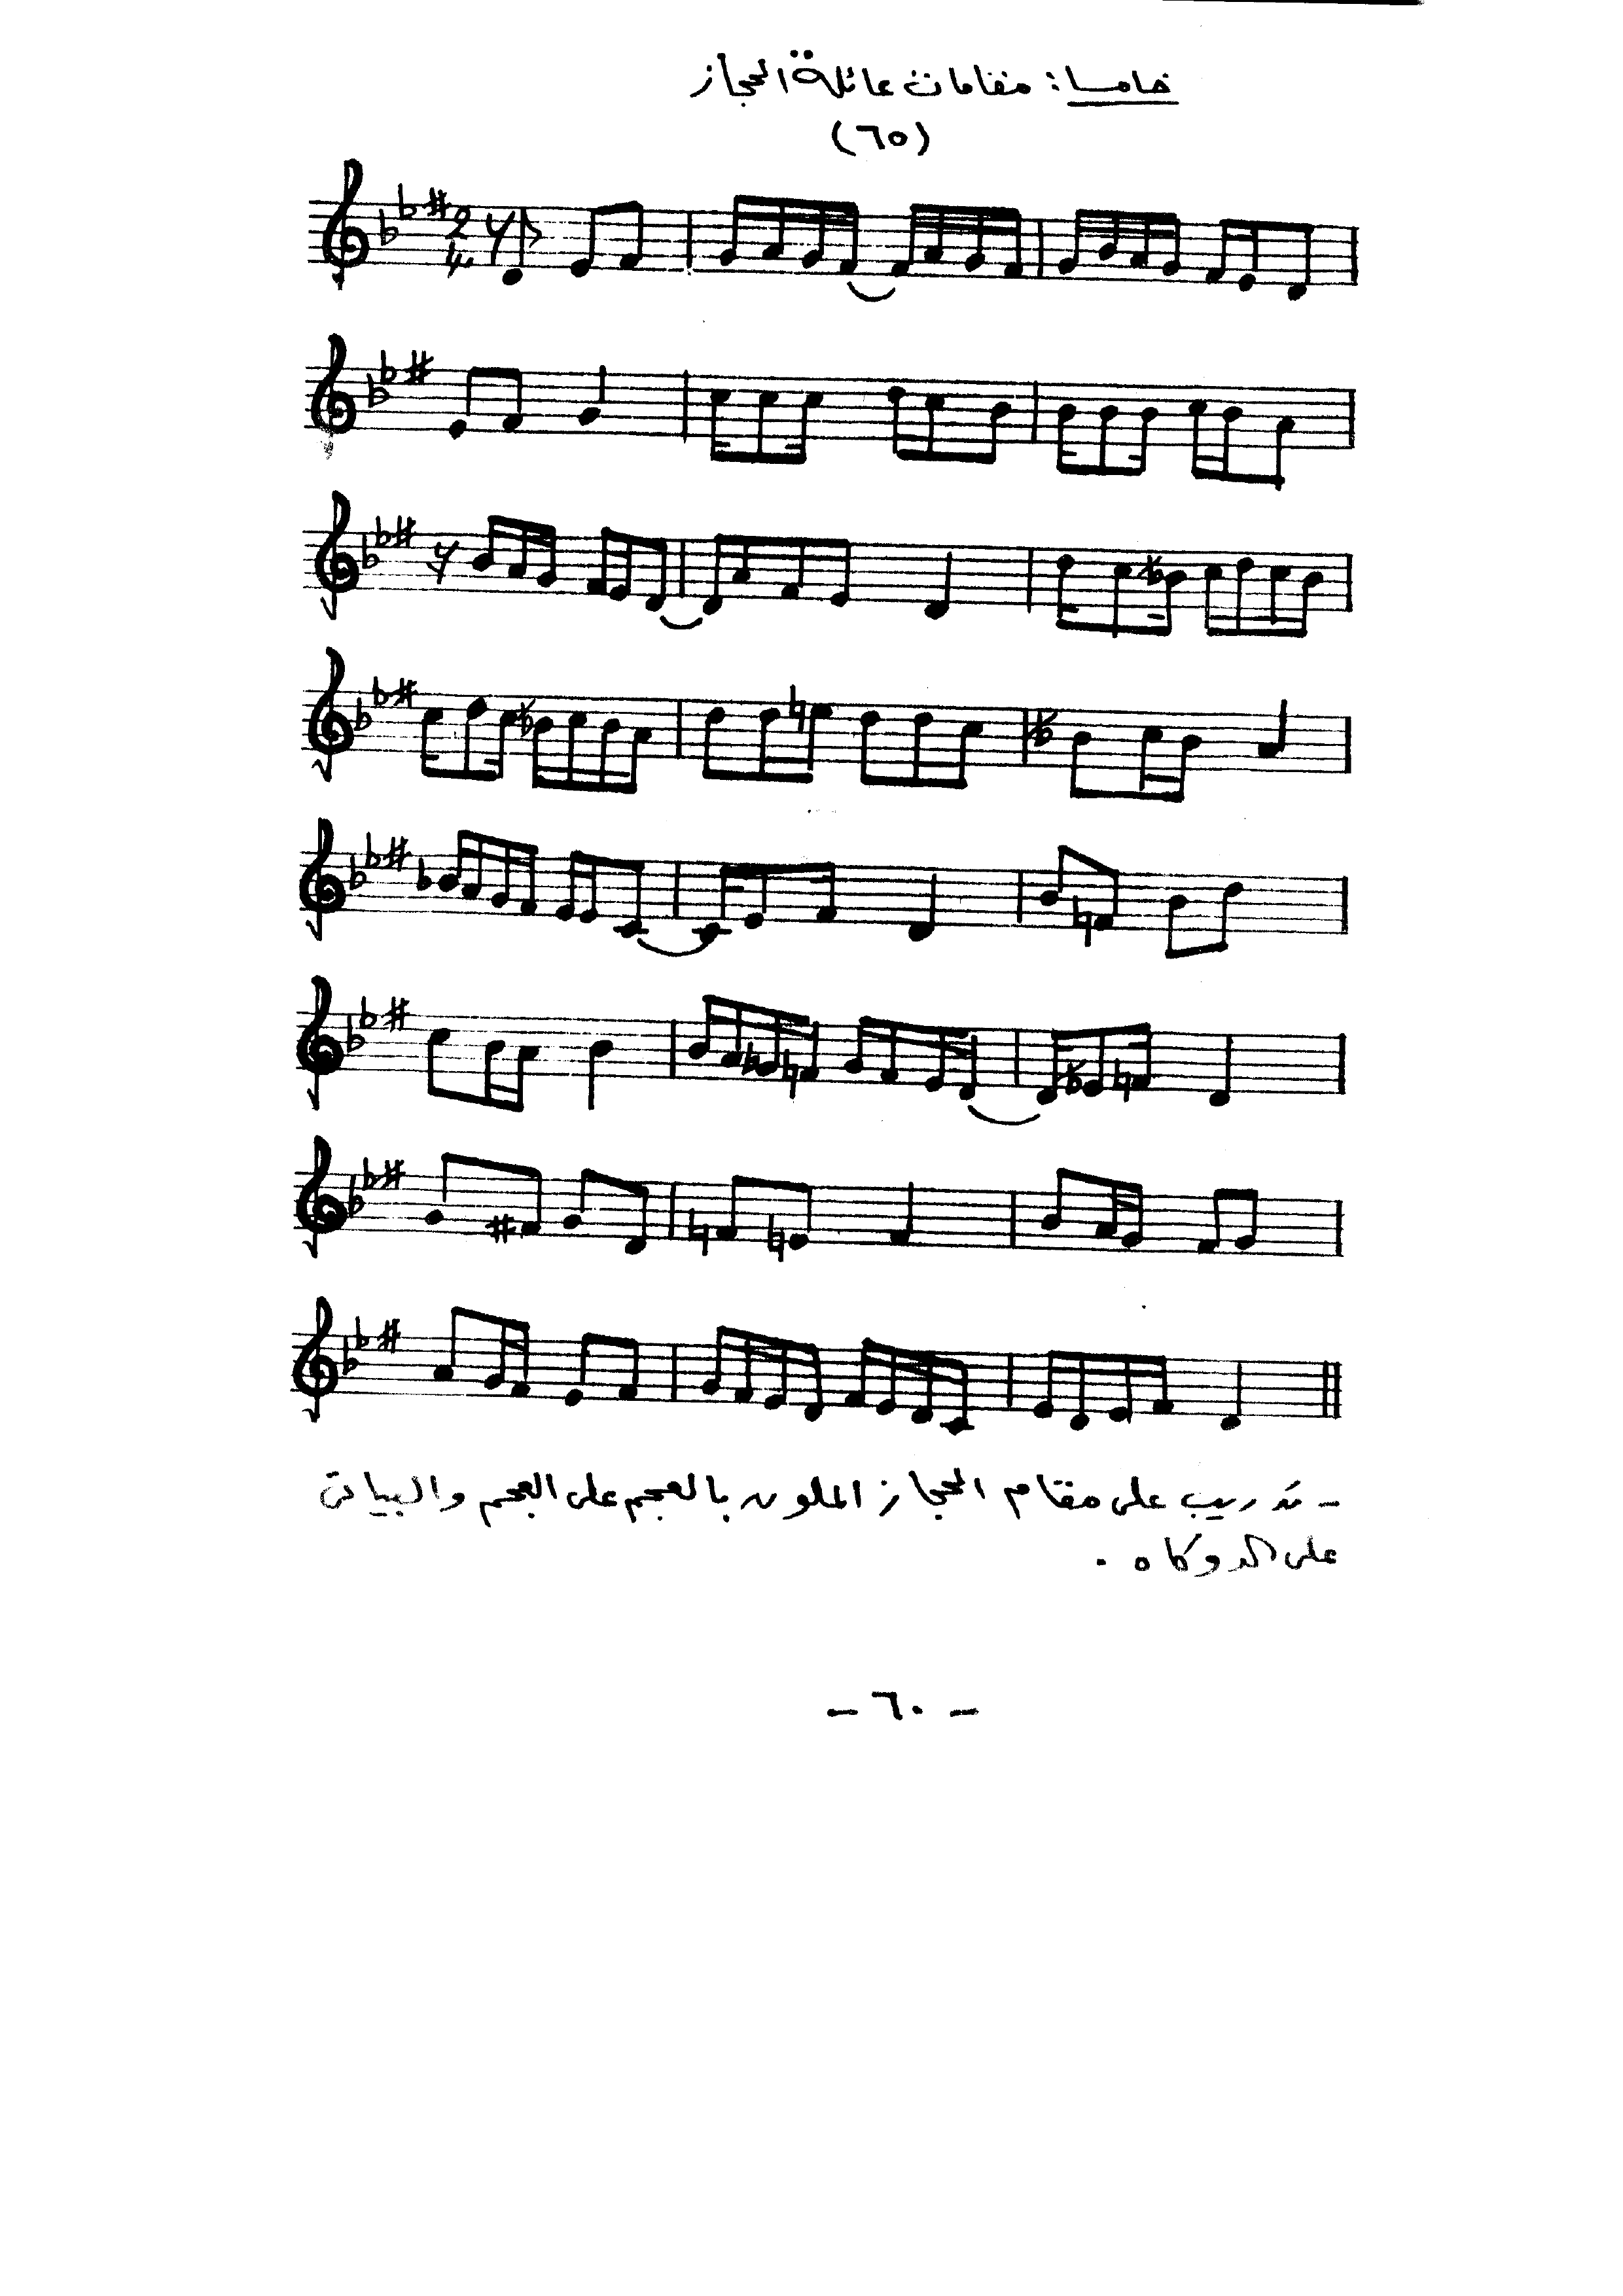 خامسا: مقامات عائلة الحجاز
(٦٥)
2
4
- تدريب على مقام الحجاز الملون بالعجم على العجم والبياتى
على الدوكاه .
- ٦٠ -